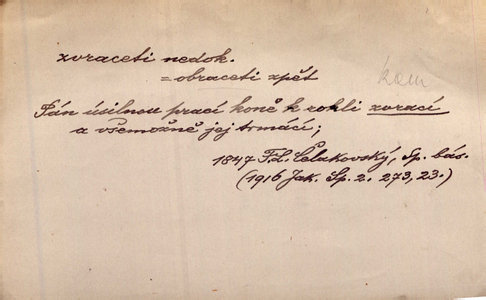 zvraceti nedok.
= obraceti zpět
kom
Pán úsilnou prací koně k rokli zvrací
a všemožně jej trmácí;
1847 F. L. Čelakovský, Sp. bás.
(1916 Jak. Sp. 2. 273, 23.)